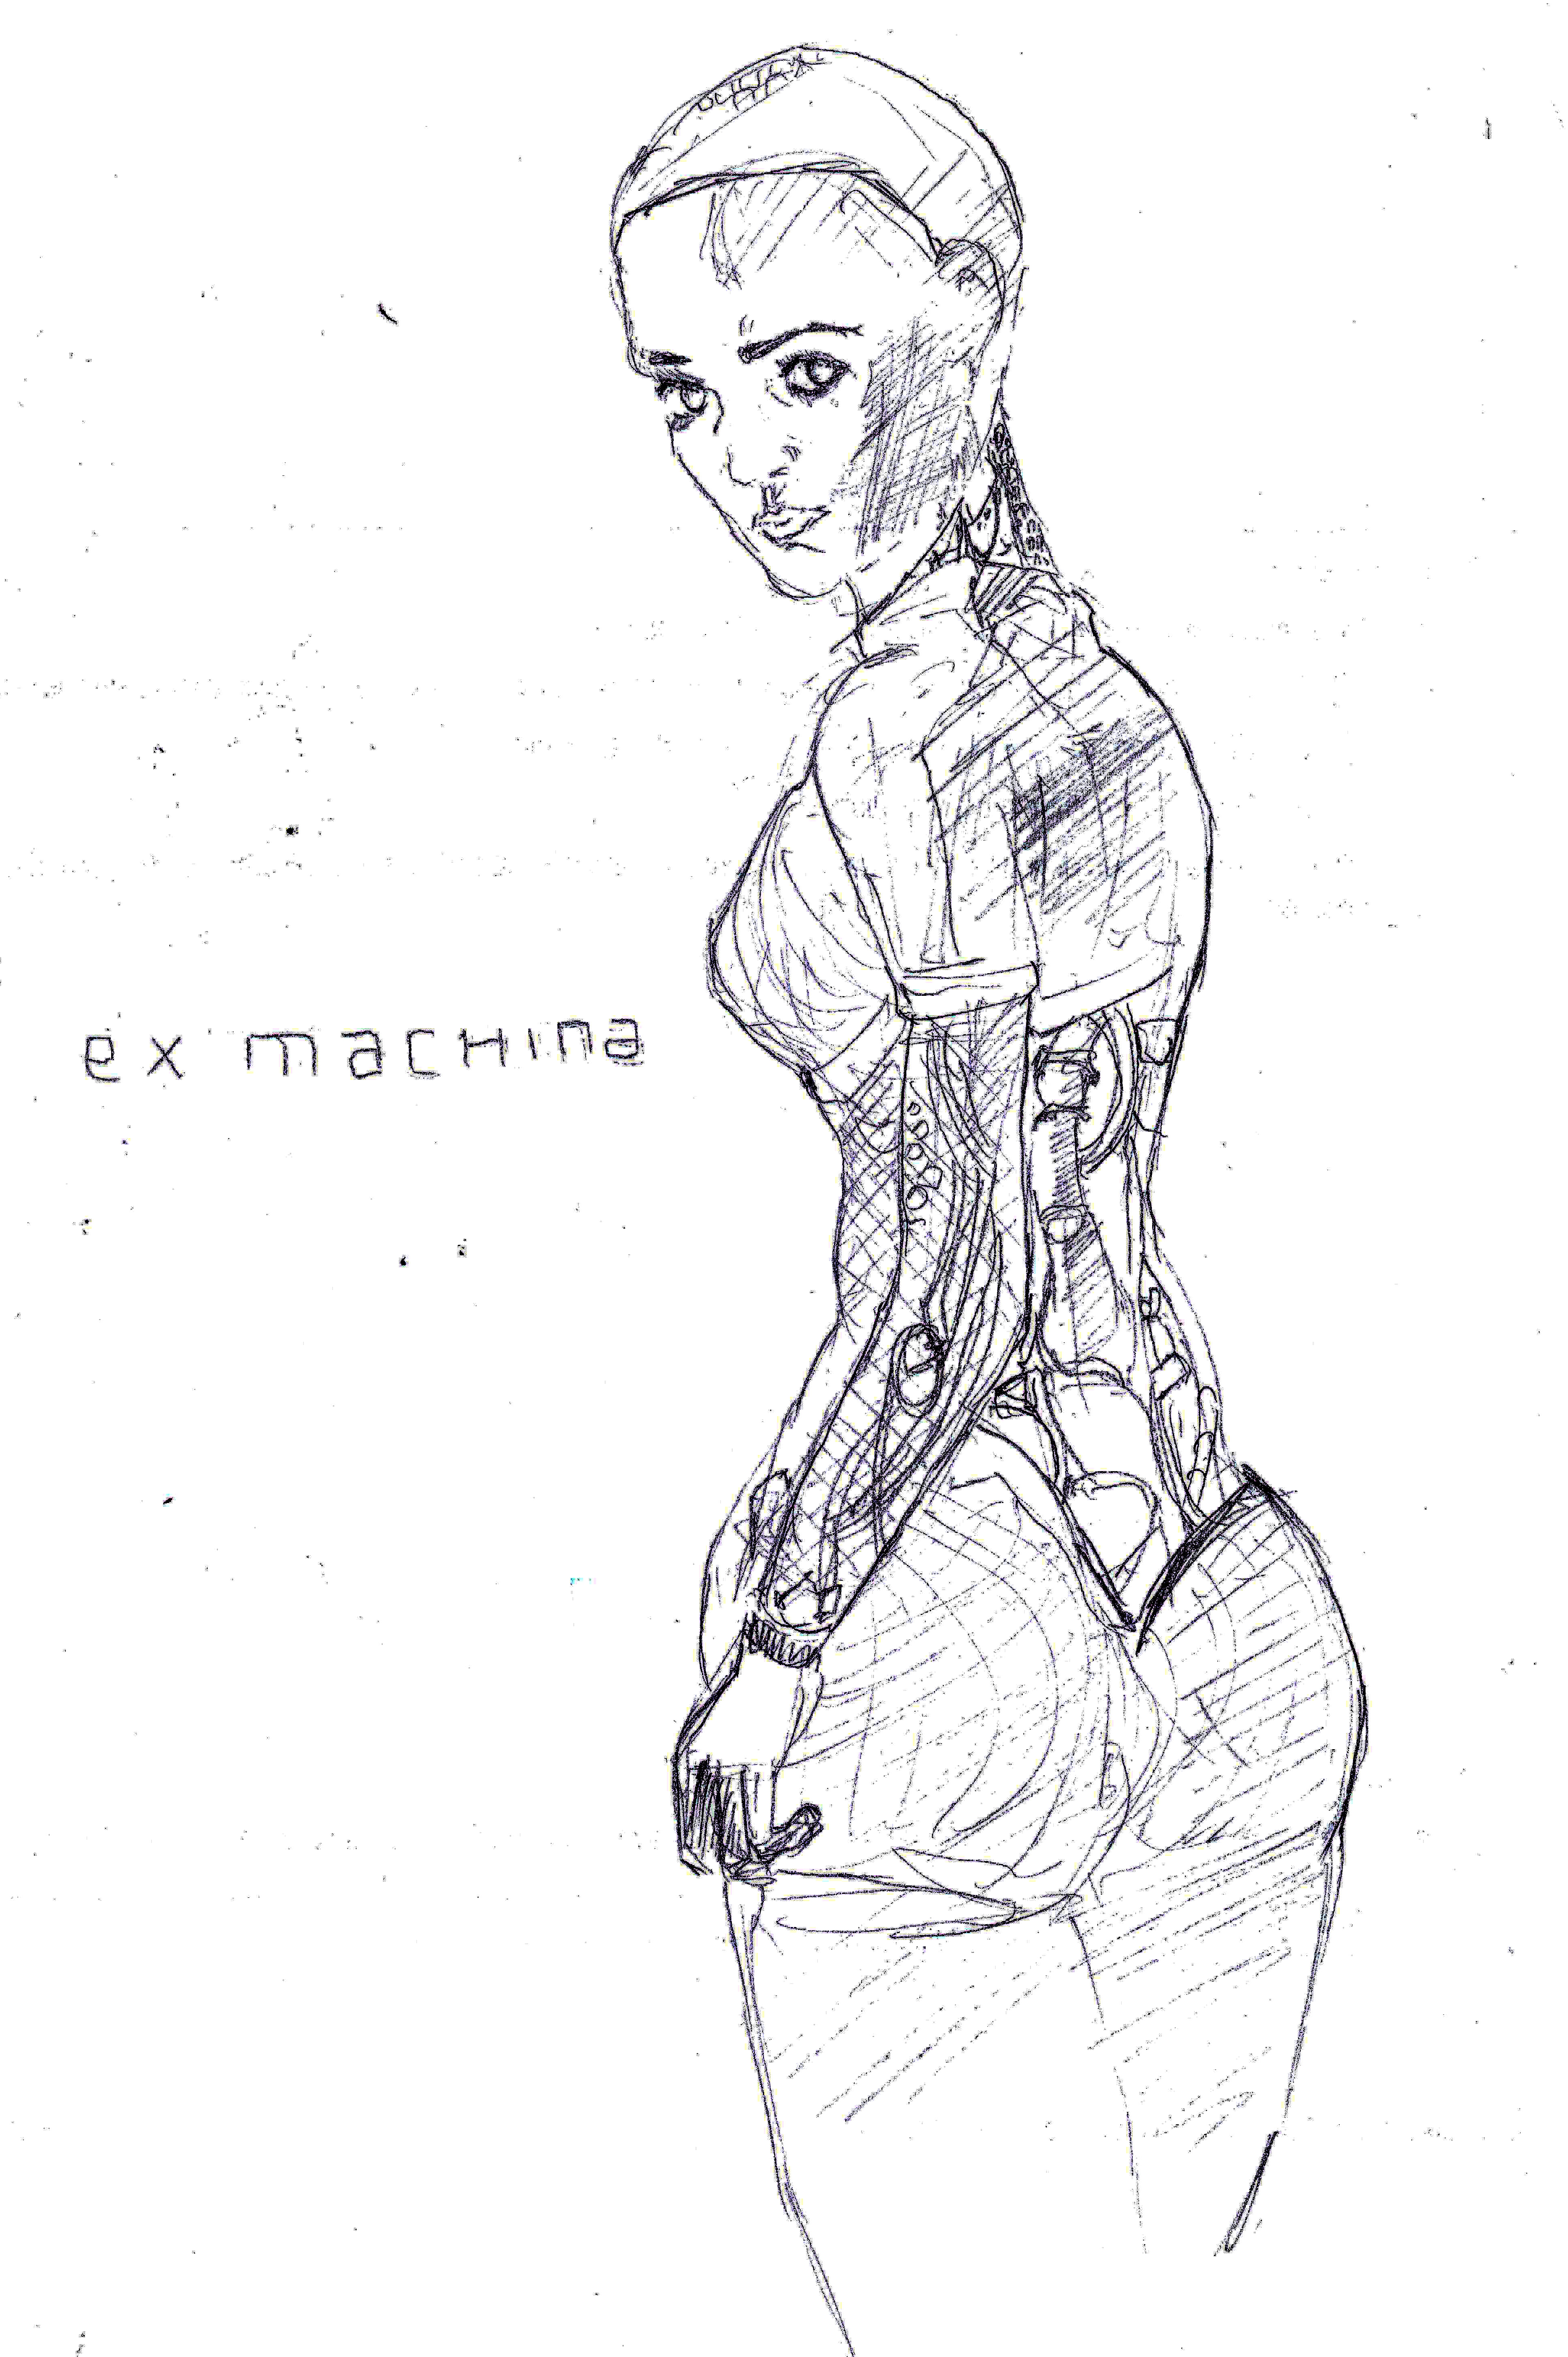 ex machina